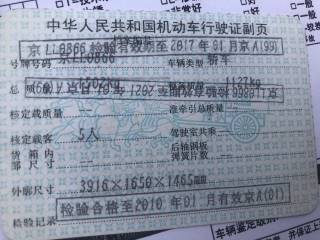 中华人民共和国机动车行驶证副页
京LL0866检验有效期至2017年01月京A(99)
号牌号码 京LL0866 车辆类型 轿车
总质量
核定载质量 准牵引总质量
核定载客 5人 驾驶室共乘
货箱内部尺寸 后轴钢板弹簧片数
外廓尺寸 3916×1650×1465mm
检验合格至2010年01月有效京A(01)
检验记录